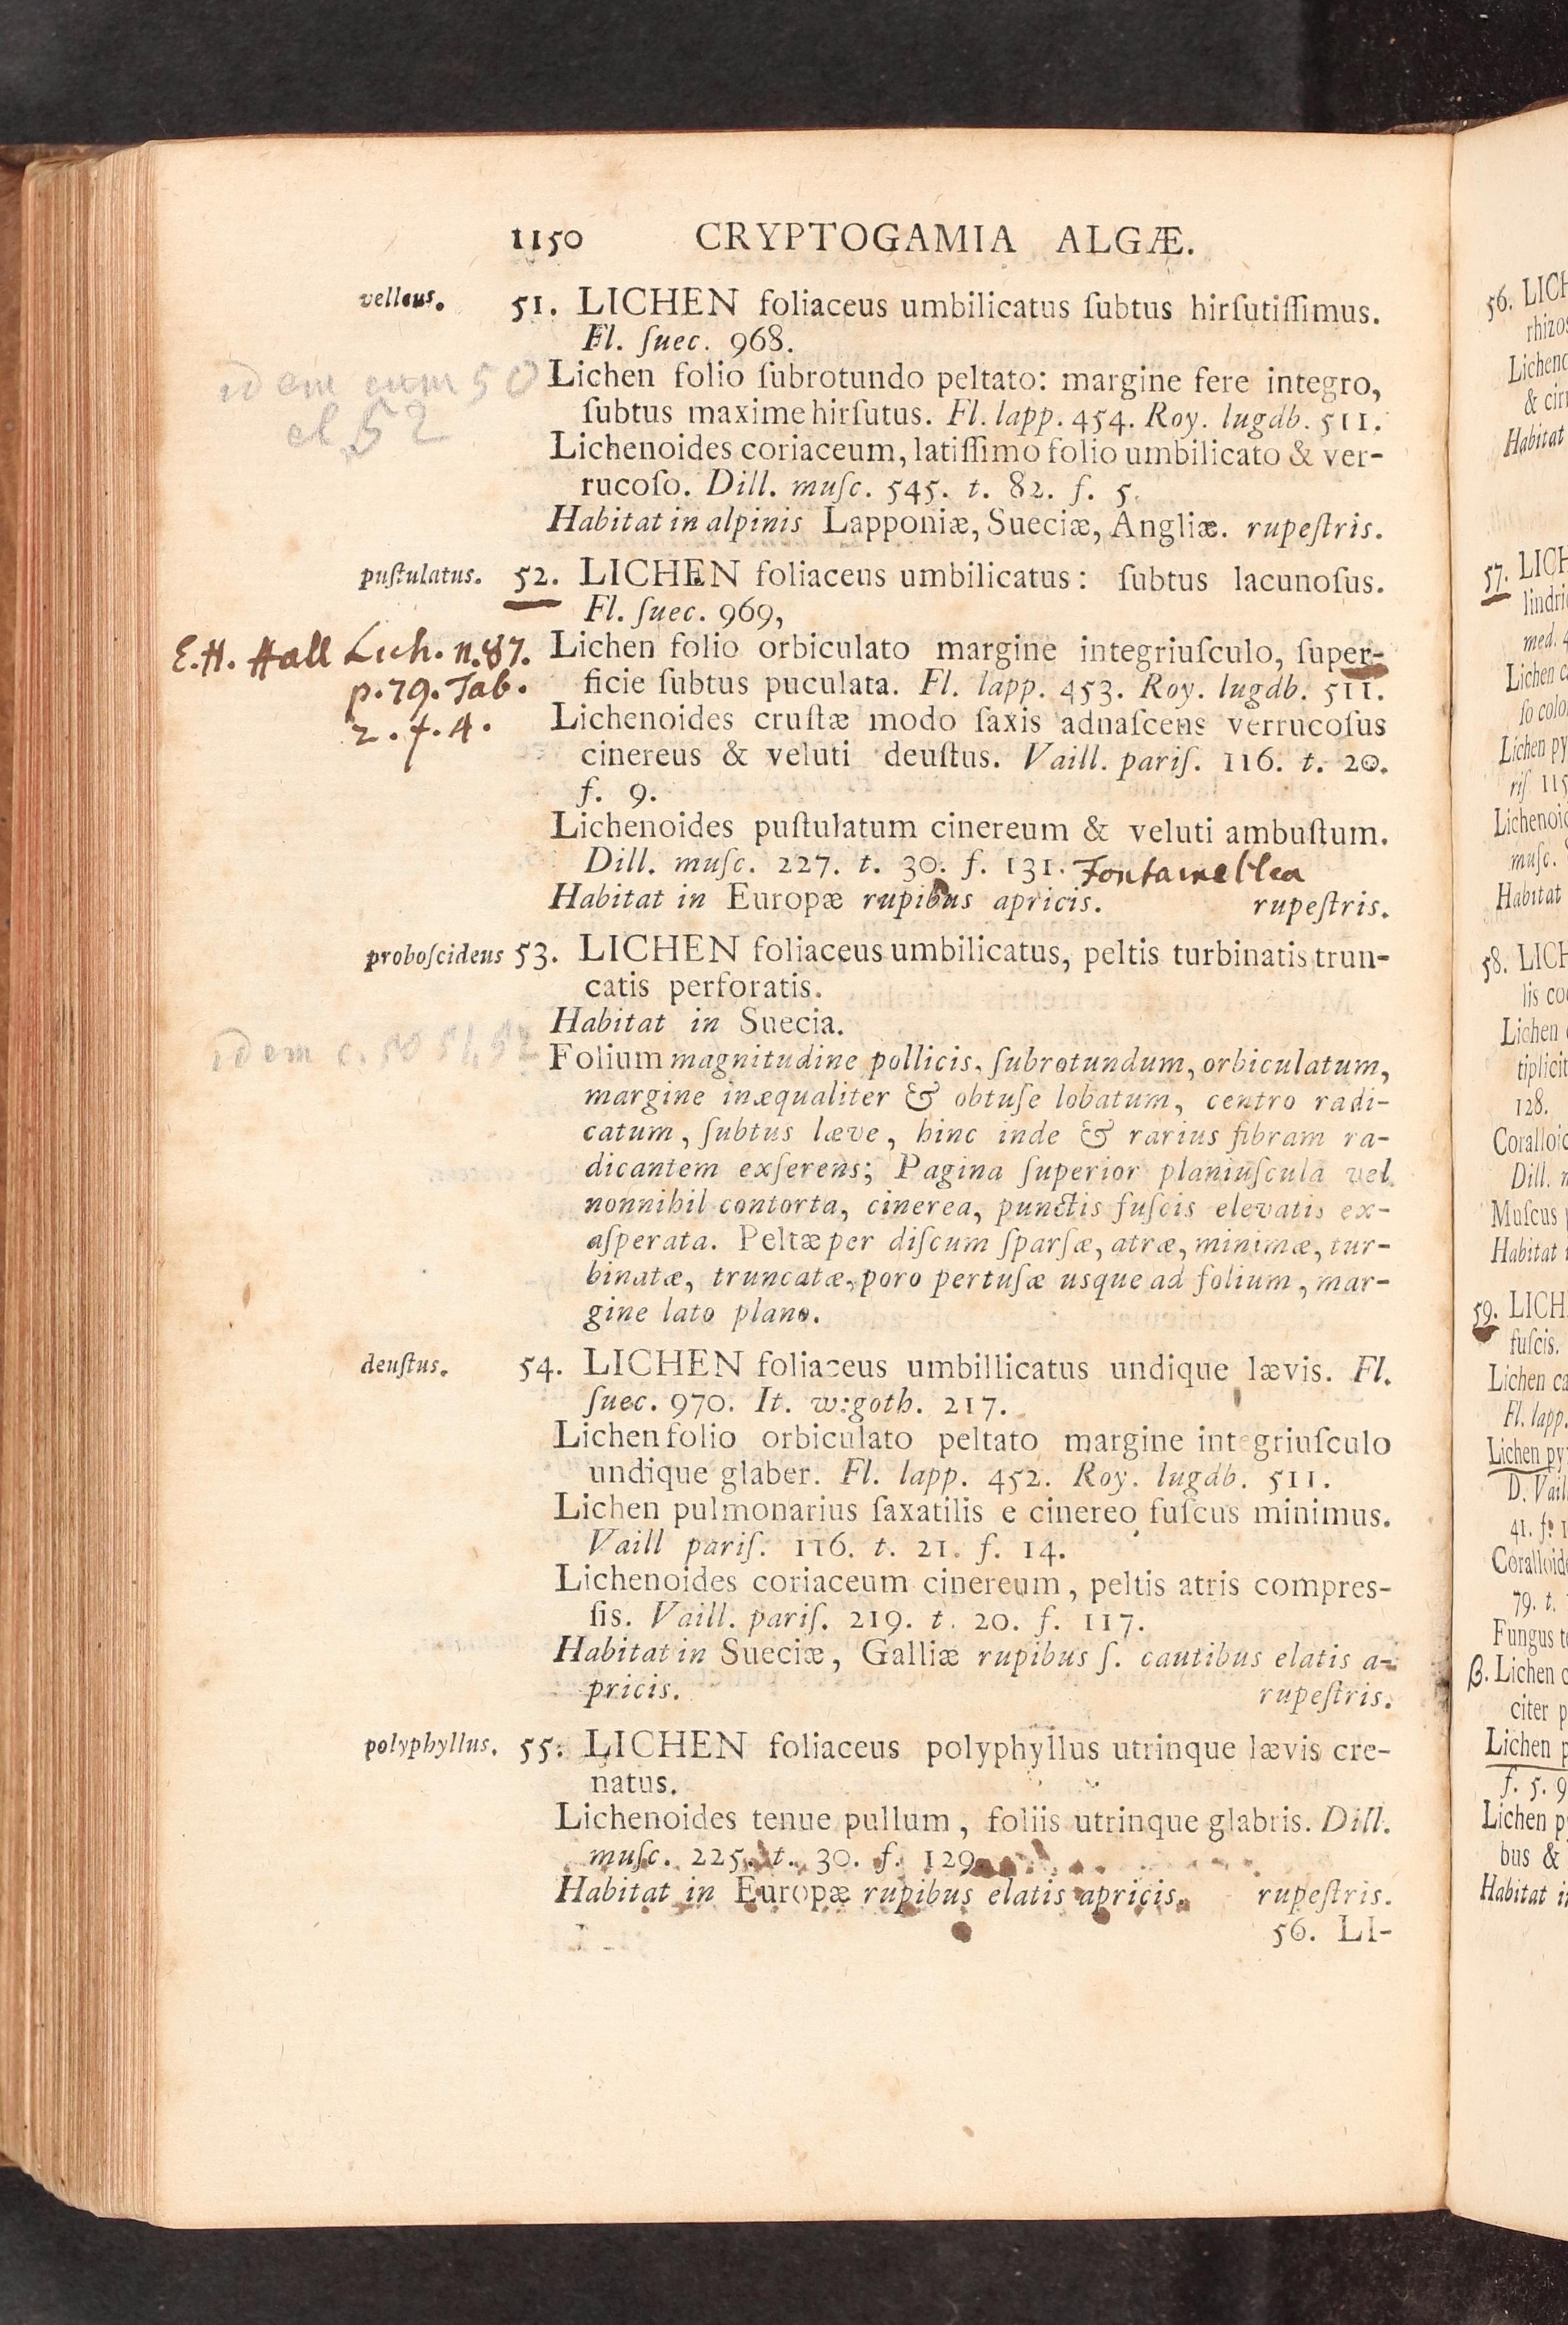 1150 CRYPTOGAMIA ALGÆ.
velleus. 51. LICHEN foliaceus umbilicatus ſubtus hirſutiſſimus.
Fl. ſuec. 968.
idem cum 50
el 52
Lichen folio ſubrotundo peltato: margine fere integro,
ſubtus maxime hirſutus. Fl. lapp. 454. Roy. lugdb. 511.
Lichenoides coriaceum, latiſſimo folio umbilicato & ver-
rucoſo. Dill. muſc. 545. t. 82. f. 5.
Habitat in alpinis Lapponiæ, Sueciæ, Angliæ. rupeſtris.
puſtulatus. 52. LICHEN foliaceus umbilicatus: ſubtus lacunoſus.
Fl. ſuec. 969,
E.H. Hall Lich. n.87.
p.79. Tab.
2. f. 4.
Lichen folio orbiculato margine integriuſculo, ſuper-
ficie ſubtus puculata. Fl. lapp. 453. Roy. lugdb. 511.
Lichenoides cruſtæ modo ſaxis adnaſcens verrucoſus
cinereus & veluti deuſtus. Vaill. pariſ. 116. t. 20.
f. 9.
Lichenoides puſtulatum cinereum & veluti ambuſtum.
Dill. muſc. 227. t. 30. f. 131.
Habitat in Europæ rupibus apricis. rupeſtris.
proboſcideus 53. LICHEN foliaceus umbilicatus, peltis turbinatis trun-
catis perforatis.
Habitat in Suecia.
idem c. 50 51, 52
Folium magnitudine pollicis, ſubrotundum, orbiculatum,
margine inæqualiter & obtuſe lobatum, centro radi-
catum, ſubtus læve, hinc inde & rarius fibram ra-
dicantem exſerens; Pagina ſuperior planiuſcula vel
nonnihil contorta, cinerea, punctis fuſcis elevatis ex-
aſperata. Peltæ per diſcum ſparſæ, atræ, minimæ, tur-
binatæ, truncatæ, poro pertuſæ usque ad folium, mar-
gine lato plano.
deuſtus. 54. LICHEN foliaceus umbillicatus undique lævis. Fl.
ſuec. 970. It. w:goth. 217.
Lichen folio orbiculato peltato margine integriuſculo
undique glaber. Fl. lapp. 452. Roy. lugdb. 511.
Lichen pulmonarius ſaxatilis e cinereo fuſcus minimus.
Vaill pariſ. 116. t. 21. f. 14.
Lichenoides coriaceum cinereum, peltis atris compreſ-
ſis. Vaill. pariſ. 219. t. 20. f. 117.
Habitat in Sueciæ, Galliæ rupibus ſ. cautibus elatis a-
pricis. rupeſtris.
polyphyllus. 55. LICHEN foliaceus polyphyllus utrinque lævis cre-
natus.
Lichenoides tenue pullum, foliis utrinque glabris. Dill.
muſc. 225. t. 30. f. 129.
Habitat in Europæ rupibus elatis apricis. rupeſtris.
56. LI-
56. LICH
rhizo
Licheno
& cir
Habitat
57. LICH
lindri
med. 4
Lichen c
ſo colo
Lichen py
riſ 115
Lichenoid
muſc.
Habitat
58. LICH
lis co
Lichen
tiplicit
128.
Coralloid
Dill. m
Muſcus
Habitat
59. LICH
fuſcis.
Lichen ca
Fl. lapp.
Lichen py
D. Vail
41. f. 1
Coralloid
79. t.
Fungus t
β. Lichen c
citer p
Lichen p
f. 5. 9
Lichen p
bus &
Habitat i